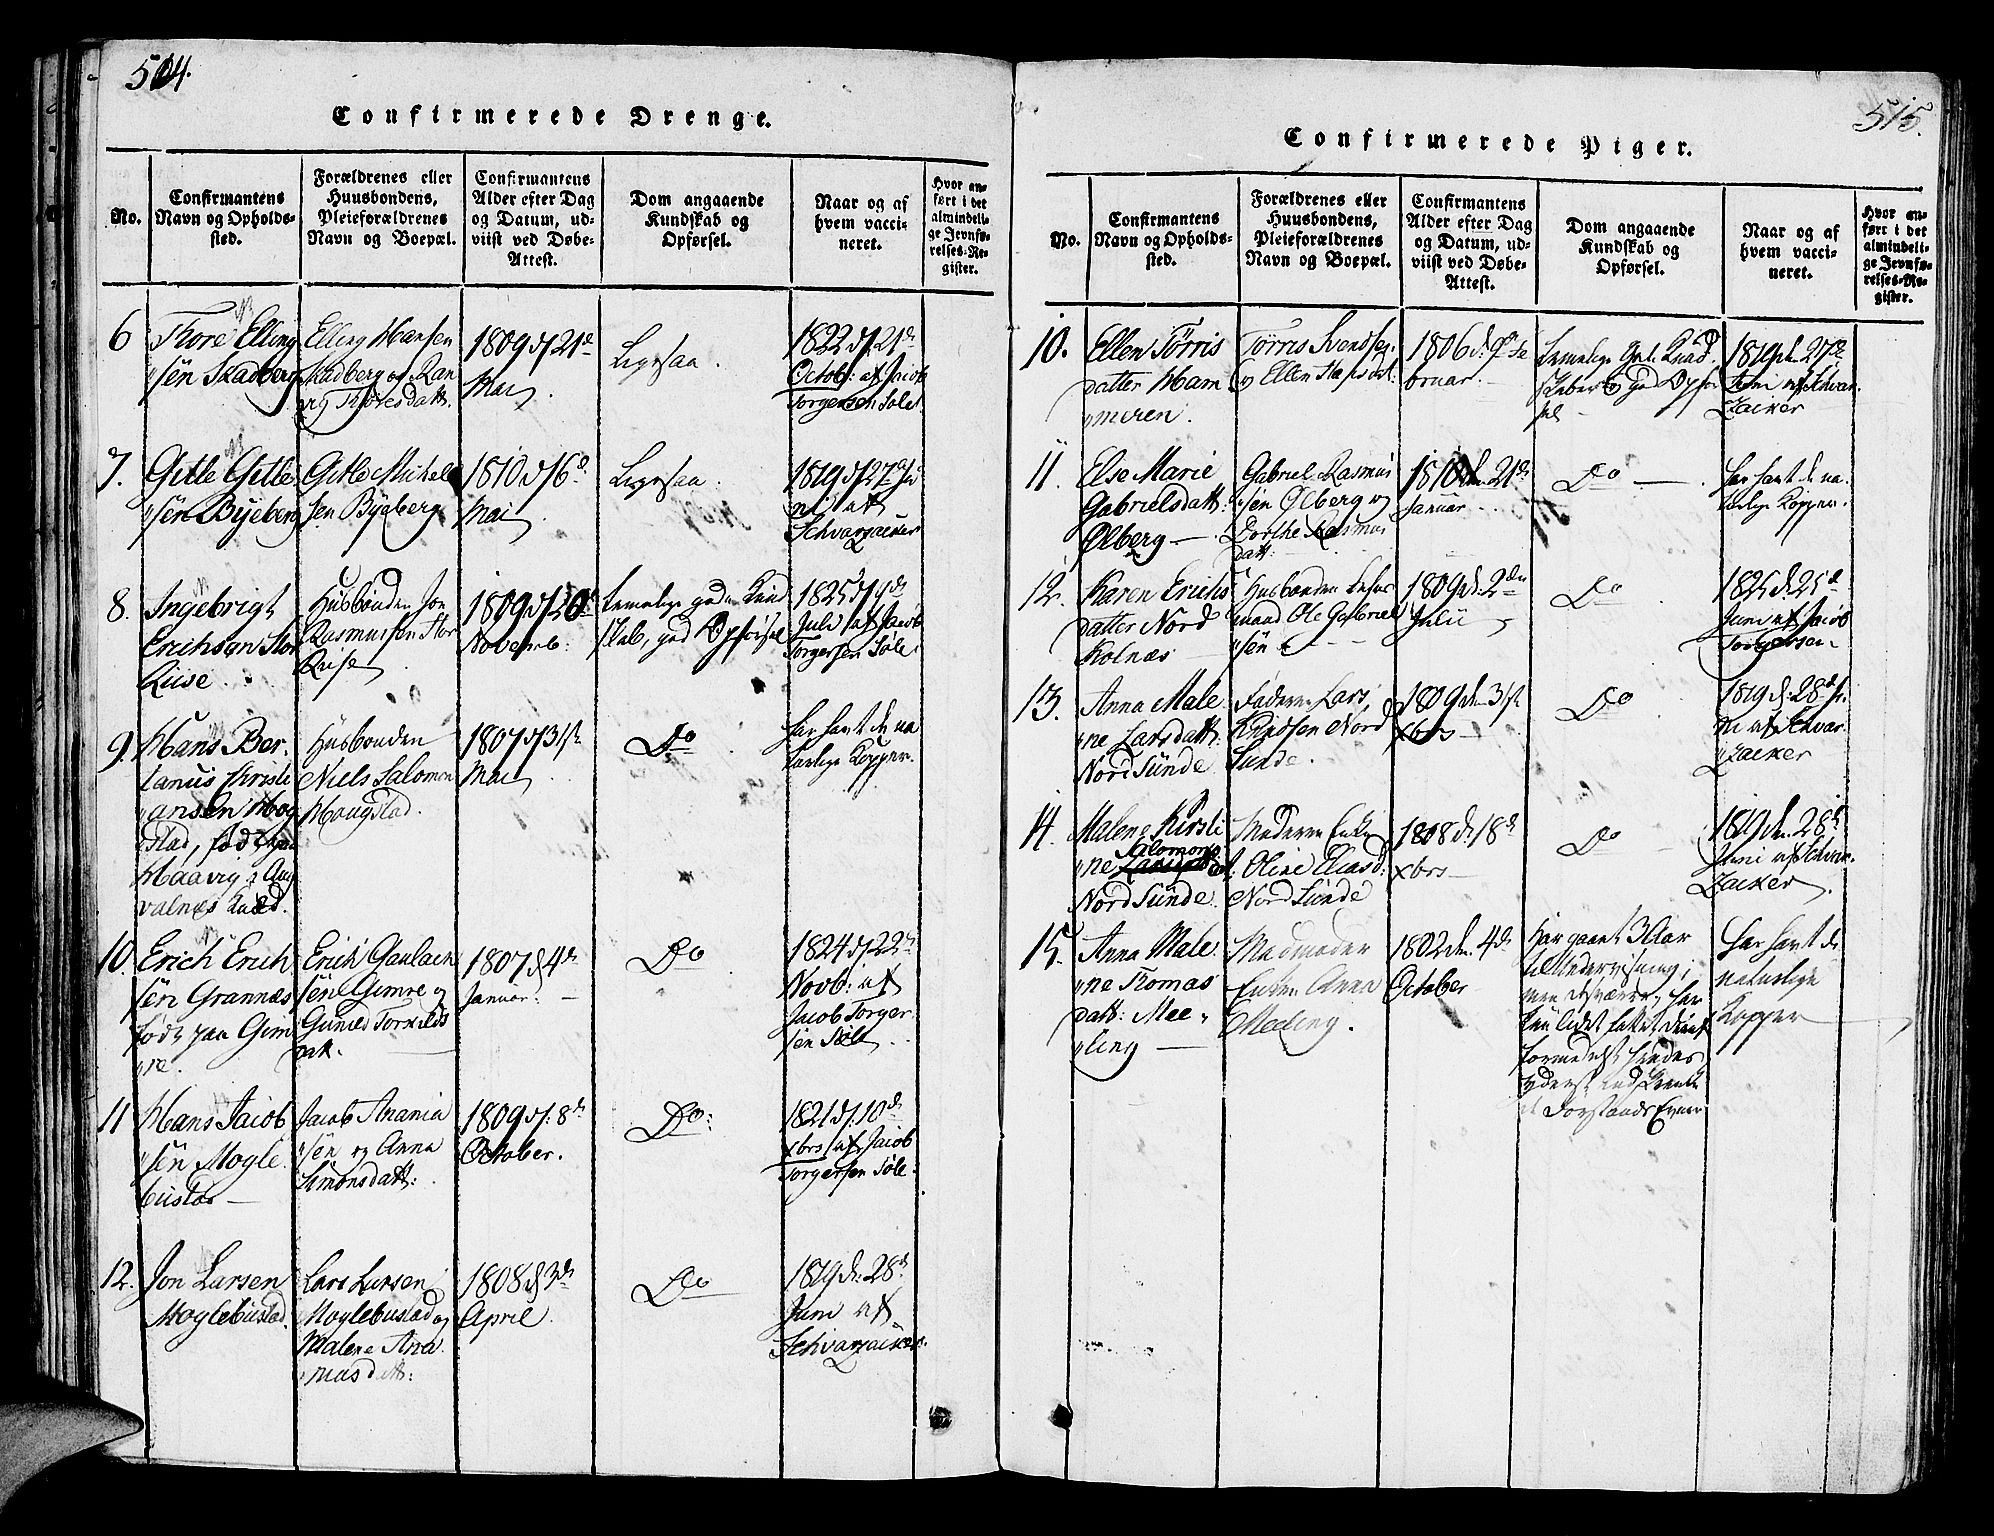 514.
Confirmerede Drenge.
No.
Confirmantens
Navn og Opholds-
sted.
Forældrenes eller
Huusbondens,
Pleieforældrenes
Navn og Boepæl.
Confirmantens
Alder efter Dag
og Datum, ud-
viist ved Døbe-
Attest.
Dom angaaende
Kundskab og
Opførsel.
Naar og af
hvem vacci-
neret.
Hvor an-
ført i det
almindeli-
ge Jevnfø-
relses-Re-
gister.
6
Thore Elling
sen Skadberg
Elling Hansen
Skadberg og Ran
veg Thoresdatt.
1809 d 21de
Mai
Ligesaa.
1822 d 21de
Octob: af Jacob
Torgersen Sole
7.
Gitle Gitle
sen Byeberg
Gitle Michel
sen Byeberg
1810 d 6te
Mai
Ligesaa.
1819 d 27de Ju
ni af
Schvarzacker
8.
Ingebrigt
Erichsen Stor
Riise.
Husbonden Jon
Rasmussen Stor
Riise
1809 d 20de
Novemb:
Temelige gode Kund
skab, god Opførsel
1825
Juli af Jacob
Torgersen Sole
9.
Hans Ber.
tanus Christi
ansen Hog
stad, født paa
Haavig i Aug
valnæs
Husbonden
Niels Salomon
Hougstad.
1807 d 31te
Mai
Do
har havt de na
turlige Kopper.
10.
Erich Erich
sen Grannæs
født paa Gim
re.
Erich Gaulach
sen Gimre og
Guned Torkilds
datt.
1807 d 4de
Januar:
Do
1824 d 22de
Novb: af
Jacob Torger
sen Sole
11
Hans Jacob
sen Mogle
bustad
Jacob Anania
sen og Anna
Simonsdatt:
1809 d. 8de
October.
Do:
1821 d. 10de
xbrs af Jacob
Torgersen Sole
12.
Jon Larsen
Moglebustad.
Lars Larsen
Moglebustad og
Malene Ana
niasdatt:
1808 d 3de
April
Do
1819 d. 28de
Juni af
Schvarzacker
515.
Confirmerede Piger.
No.
Confirmantens
Navn og Opholds-
sted.
Forældrenes eller
Huusbondens,
Pleieforældrenes
Navn og Boepæl.
Confirmantens
Alder efter Dag
og Datum, ud-
viist ved Døbe-
Attest.
Dom angaaende
Kundskab og
Opførsel.
Naar og af
hvem vacci-
neret.
Hvor an-
ført i det
almindeli-
ge Jevnfø-
relses-Re-
gister.
10.
Ellen Tørris
datter Ham
meren.
Tørris Svendsen
og Ellen
1806 d. 9de Fe
bruar.
Temelige gode Kund
skaber og god Opfør
sel
1819 d. 27de
Juni af Schvar
zacker
11.
Else Marie
Gabrielsdatt:
Ølberg
Gabriel Rasmus
sen Ølberg og
Dorthe Rasmus
datt:
1810 d. 21de
Januar
Do
har havt de na
turlige Kopper.
12.
Karen Erichs
datter Nord
Kolnæs
Husbonden
Ole Gabriel
sen
1809 d. 2den
Julii
Do
1825 d. 25de
Juni af Jacob
Torgersen
13.
Anna Male
ne Larsdatt:
Nord Sunde
Faderen Lars
Knudsen Nord
Sunde.
1809 d. 31te
xbrs
Do
1819 d. 28de Ju
ni af Schvar
zacker
14.
Malene Kirsti
ne Salomons
dat:
Nord Sunde.
Moderen Enke
Oline Eliasd:
Nord Sunde
1808 d. 18de
xbrs
Do
1819 den. 28de
Juni af Schvar
zacker.
15.
Anna Male
ne Thomas
datt: Mee
ling
Madmoder
Enken Anna
Meeling.
1802 den. 4de
October
Har gaaet 3 Aar
til Undervisning,
men desværre, har
kun lidet fattet deraf
formedelst hendes
yderst indskrænke
de Forstands Evner
har havt de
naturlige
Kopper